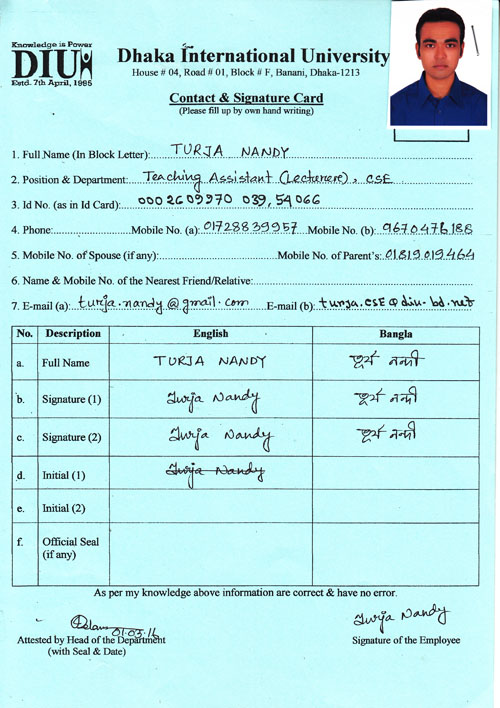 Knowledge is Power
DIU
Estd. 7th April, 1995
Dhaka International University
House # 04, Road # 01, Block # F, Banani, Dhaka-1213
Contact & Signature Card
(Please fill up by own hand writing)
1. Full Name (In Block Letter): TURJA NANDY
2. Position & Department: Teaching Assistant (Lecturere), CSE
3. Id No. (as in Id Card): 0002609970 039,54066
4. Phone: Mobile No. (a): 01728839957 Mobile No. (b): 9670476188
5. Mobile No. of Spouse (if any): Mobile No. of Parent's: 01819019464
6. Name & Mobile No. of the Nearest Friend/Relative:
7. E-mail (a): turja.nandy@gmail.com E-mail (b): turja.cse@diu-bd.net
No. Description English Bangla
a. Full Name TURJA NANDY তূর্য নন্দী
b. Signature (1) Turja Nandy তূর্য নন্দী
c. Signature (2) Turja Nandy তূর্য নন্দী
d. Initial (1) Turja Nandy
e. Initial (2)
f. Official Seal
(if any)
As per my knowledge above information are correct & have no error.
01.03.16
Turja Nandy
Attested by Head of the Department Signature of the Employee
(with Seal & Date)